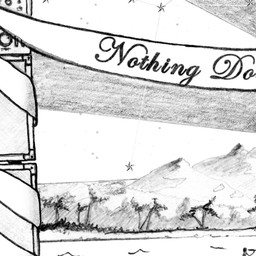 Nothing Do